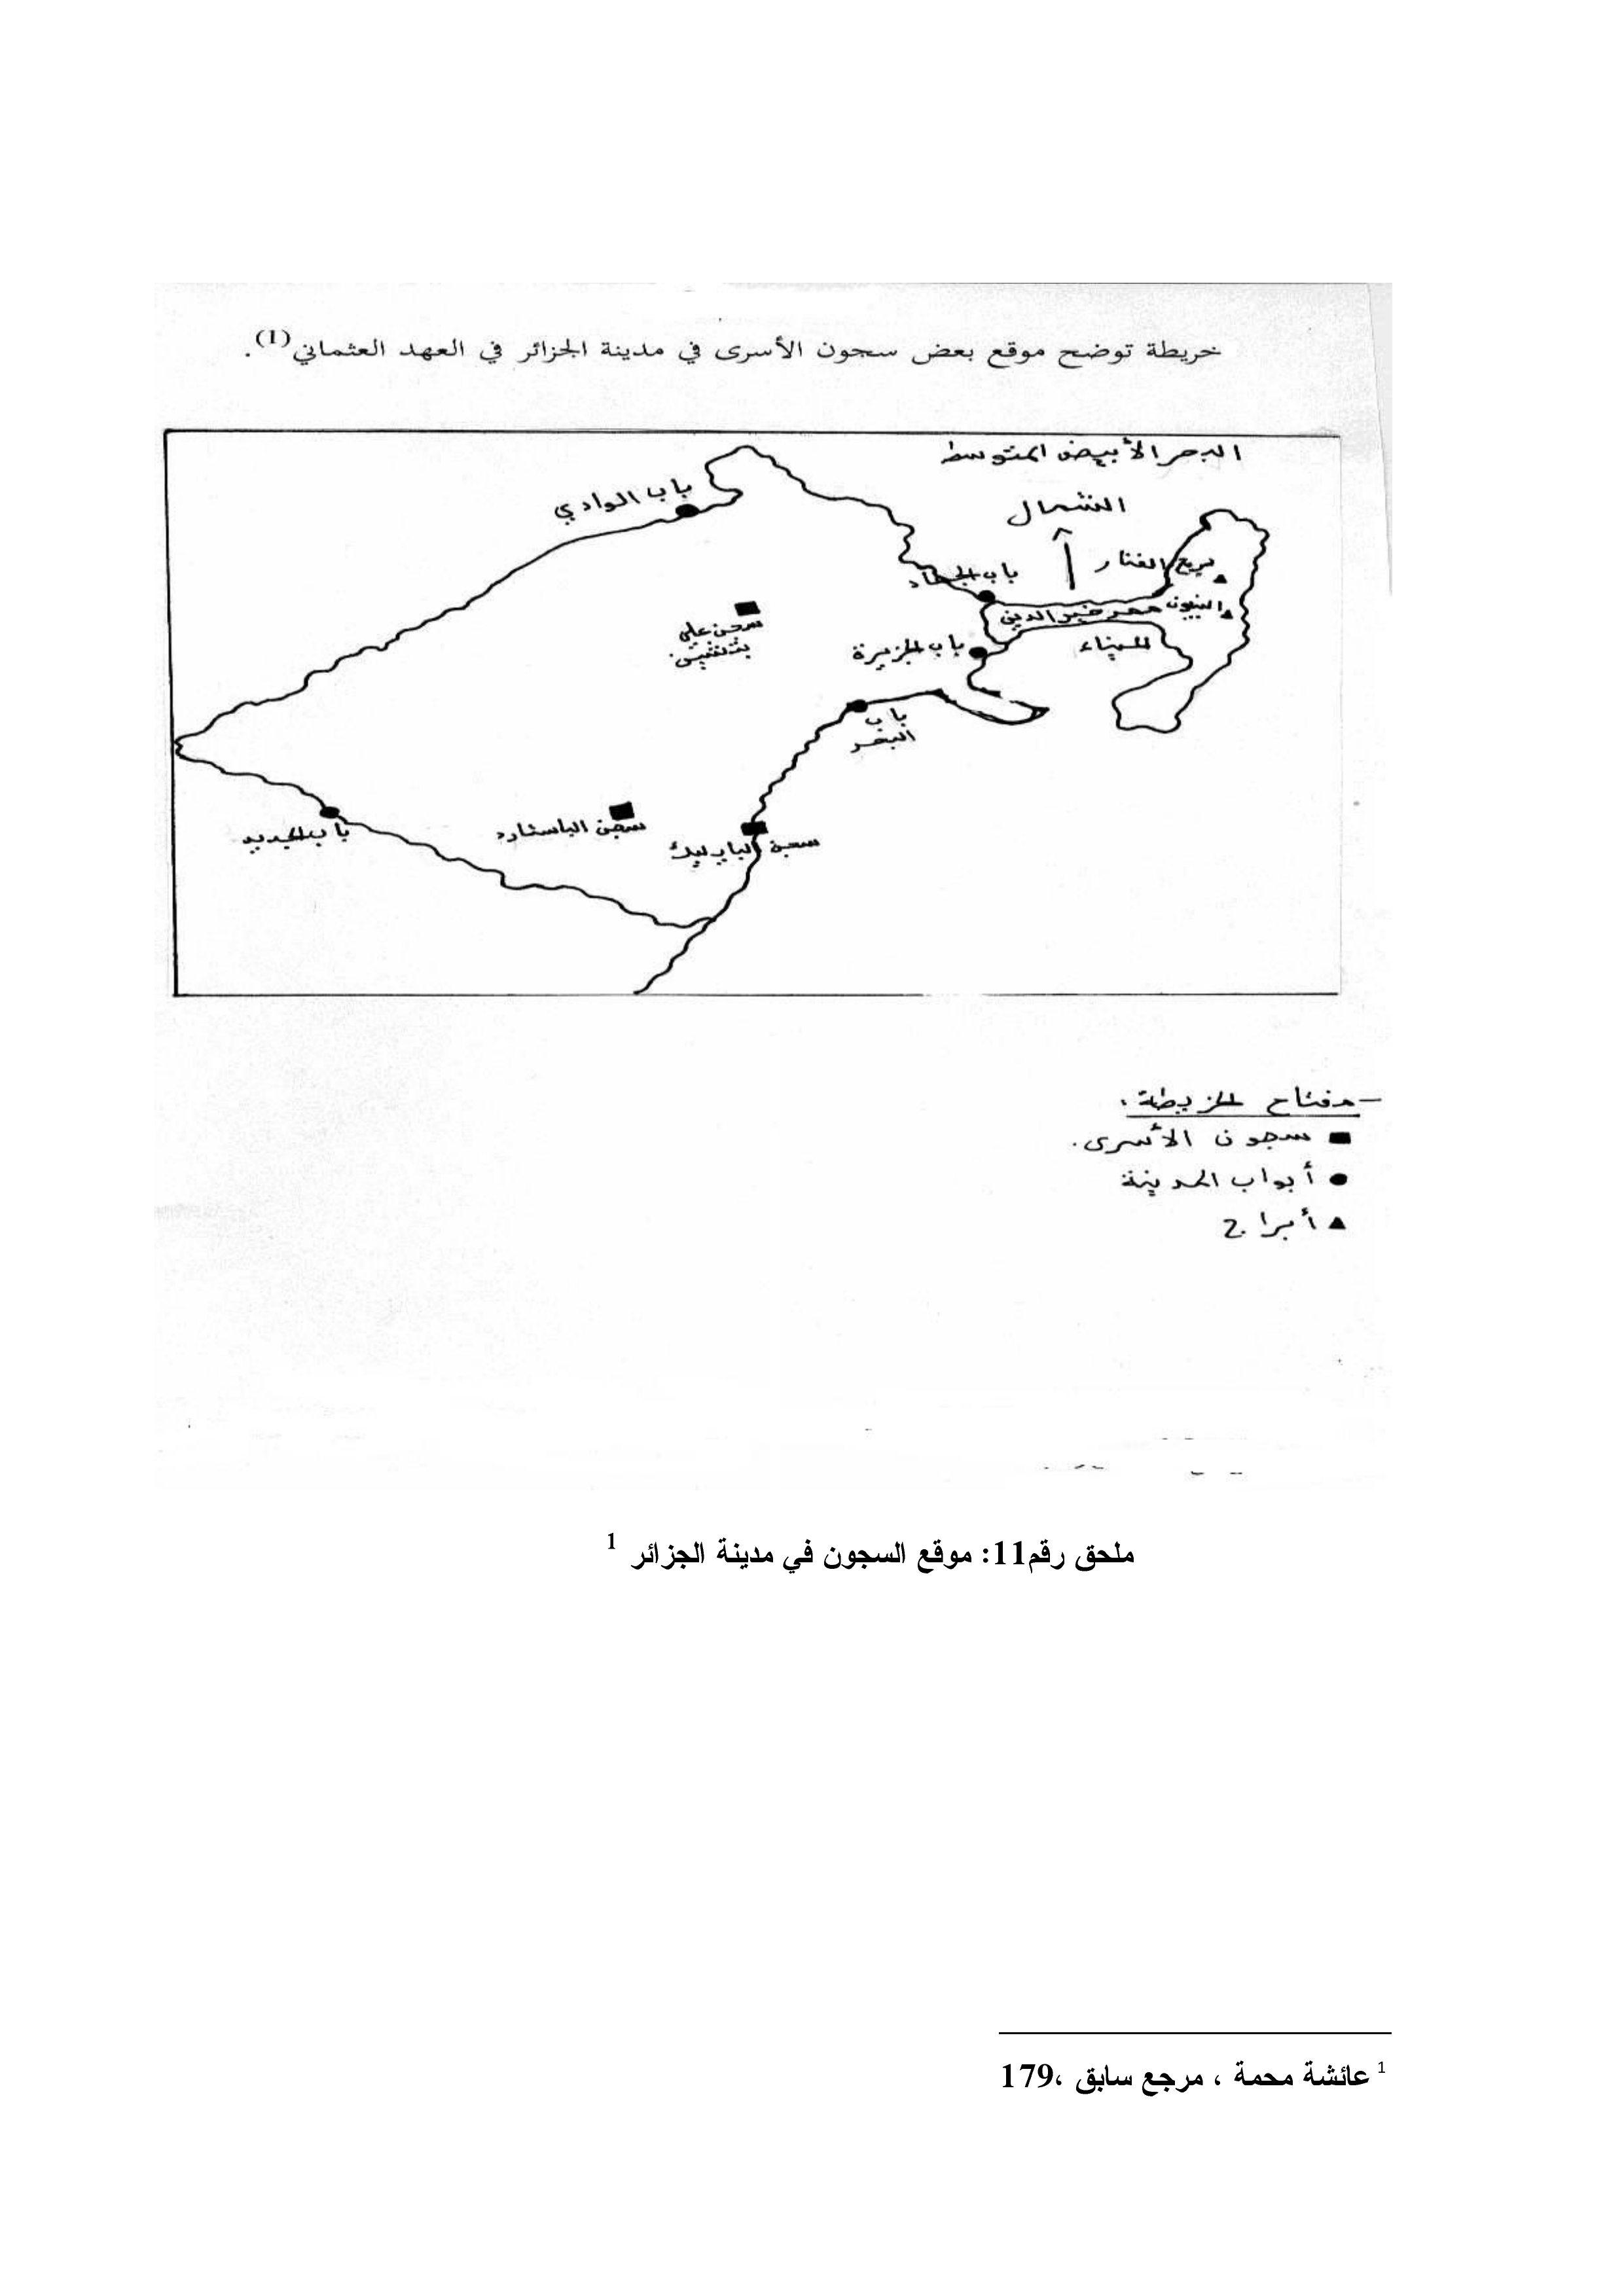 خريطة توضح موقع بعض سجون الأسرى في مدينة الجزائر في العهد العثماني(1).
البحر الأبيض المتوسط
الشمال
باب الوادي
برج الفنار
باب الجهاد
البنيون
ممر خير الدين
سجن علي
باب الجزيرة
الميناء
باب
البحر
سجن الباستارد
باب الجديد
سجن البايليك
- مفتاح الخريطة.
سجون الأسرى.
أبواب المدينة
أبراج
ملحق رقم11: موقع السجون في مدينة الجزائر 1
1 عائشة محمة ، مرجع سابق ،179